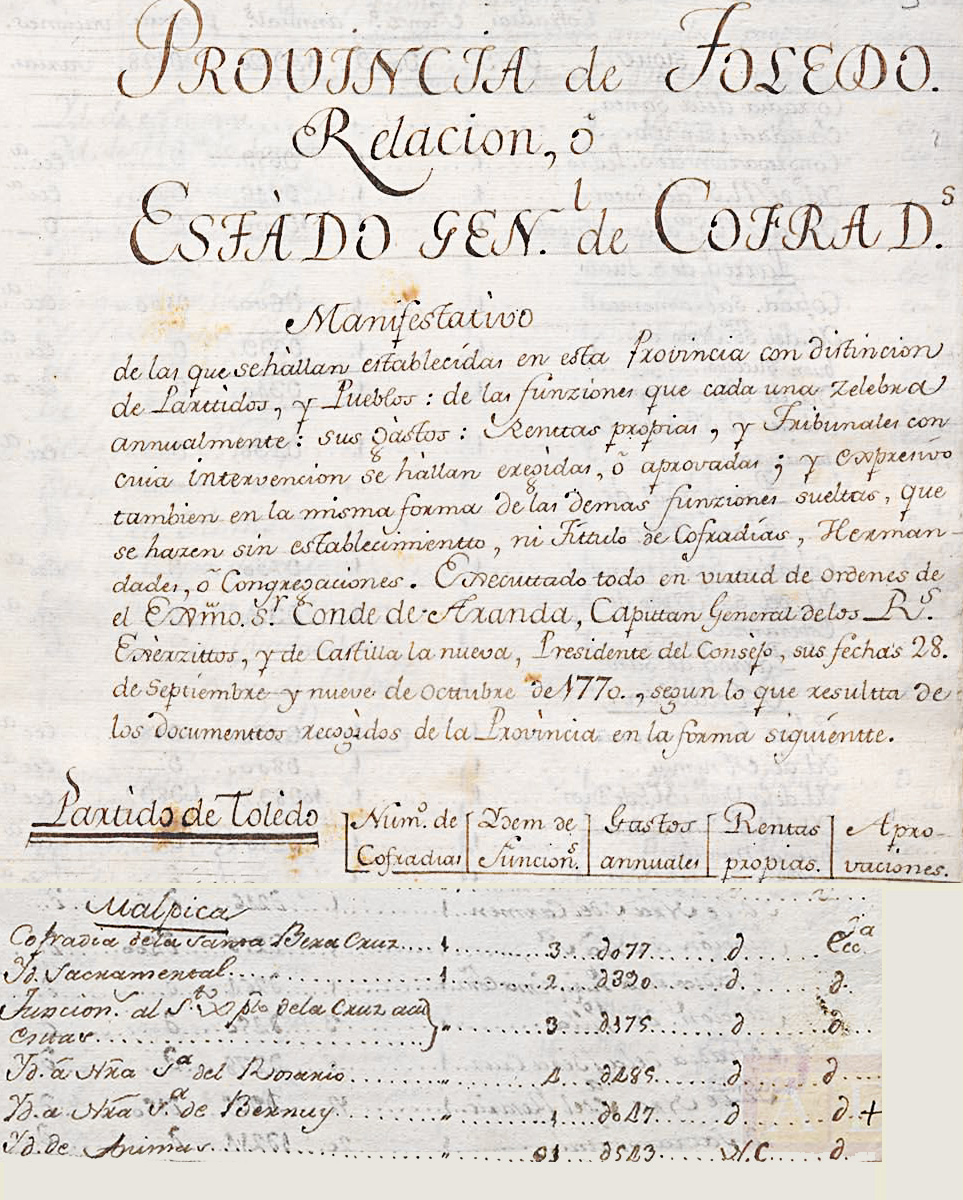 PROVINCIA de TOLEDO.
Relacion, ò
ESTÀDO GEN.l de COFRAD.s
Manifestativo
de las que se hàllan establecídas en esta Provincia con distincion
de Parttidos, y Pueblos: de las funziones que cada una zelebra
annualmente: sus gàstos: Renttas propias, y Tribunales con
cuia intervencion se hàllan eregidas, ò aprovadas; y expresivo
tambien en la misma forma de las demas funziones sueltas, que
se hazen sin establecimientto, ni Títtulo de Cofradías, Herman-
dades, ò Congregaciones. Executtado todo en virtud de ordenes de
el Exmo. S.r Conde de Aranda, Capittan General de los R.s
Exèrzittos, y de Castilla la nueva, Presidente del Consejo, sus fechas 28.
de Septiembre y nueve de Octtubre de 1770., segun lo que resultta de
los documenttos recogidos de la Provincia en la forma siguientte.
Partido de Tolèdo
Num.o de Cofradias
Idem de Funcion.s
Gastos annuales
Rentas propias.
Aprovaciones.
Malpica
Cofradia de la santa Bera Cruz.... 1 ... 3.. do77 ... d ... Ecc.a
Yd. Sacramental.... 1 ... 2.. d390.. d. ... d.
Funcion. al S.to Xpto de la Cruz acu
enttas.... " ... 3.. d175.. d ... d.
Yd. à Nra S.a del Rosario.... " ... 4.. d485... d ... d.
Yd. a Nra S.a de Bernuy.... " ... 1.. do47.. d ... d. +
Yd. de Animas.... " ... 91.. d543.. N.C. ... d.